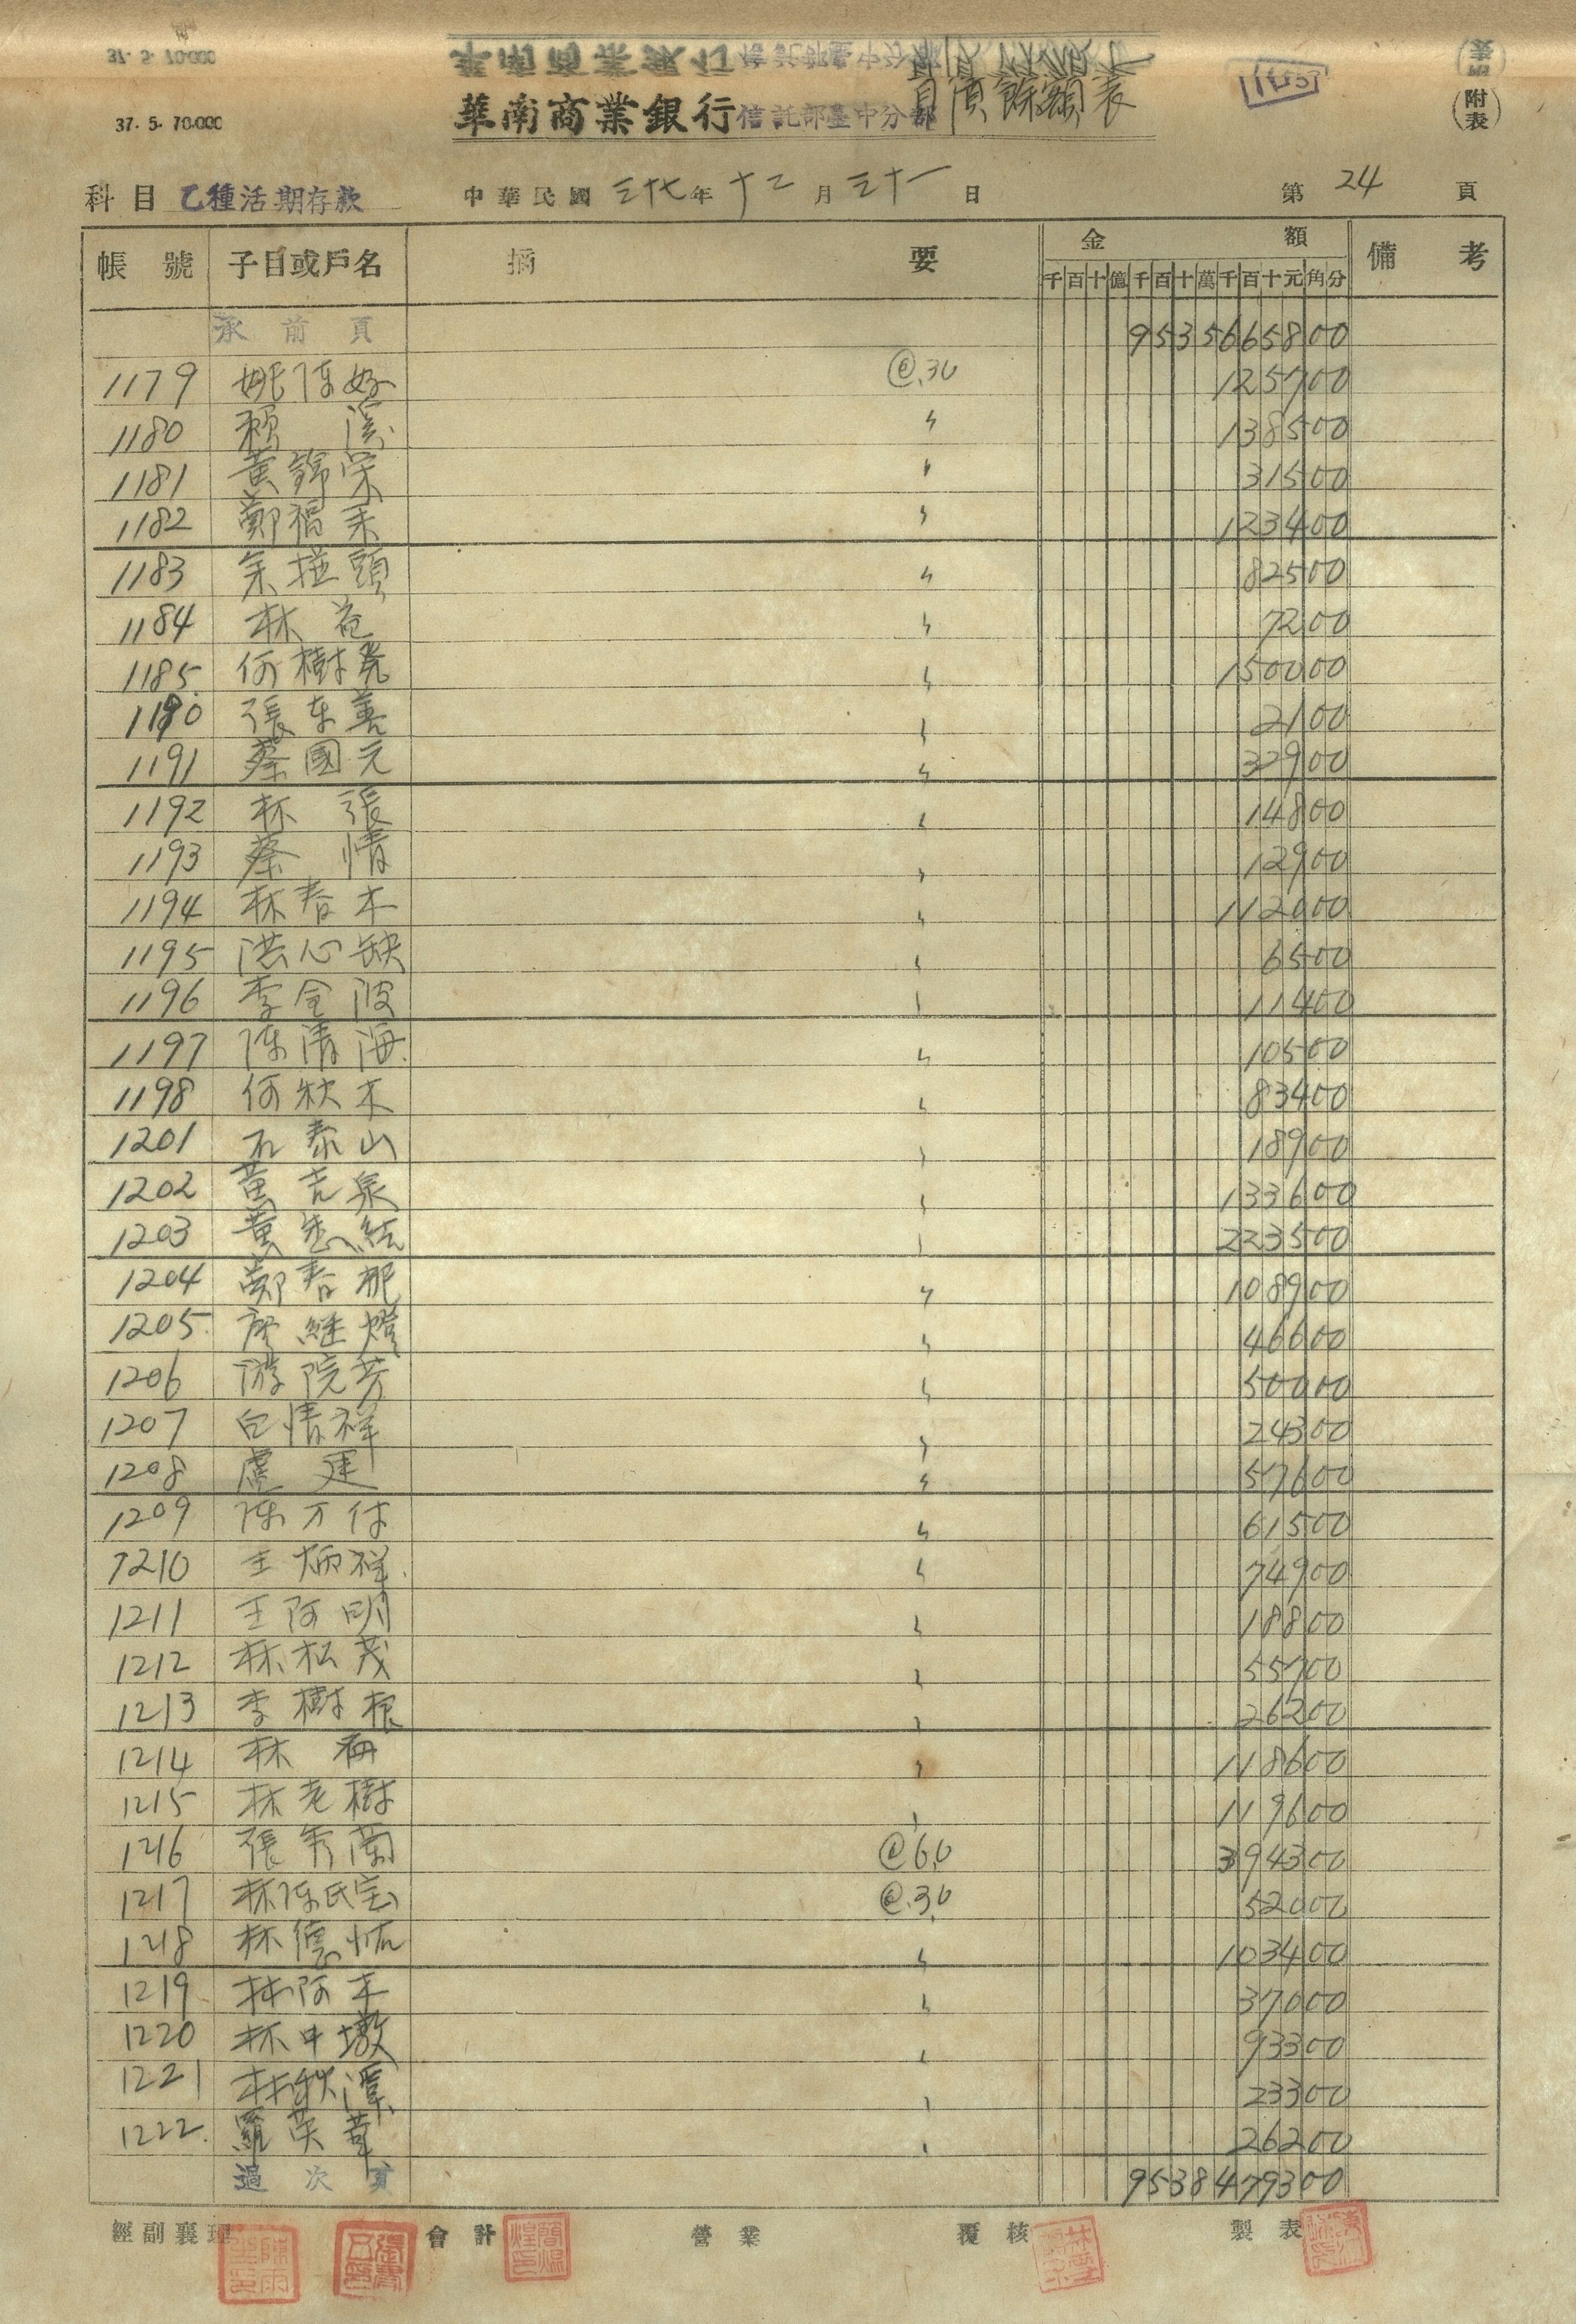 37. 5. 70.000
華南商業銀行信託部臺中分部負債餘額表
(附表)
科目 乙種活期存款 中華民國 三十七年 十二月 三十一日 第 24 頁
帳號 子目或戶名 摘要 金額 備考
千百十億千百十萬千百十元角分
承前頁 953566 5800
1179 姚陳好 @.30 125700
1180 賴溪 〃 138500
1181 黃錦栄 〃 31500
1182 鄭福来 〃 123400
1183 余挂頭 〃 82500
1184 林苍 〃 7200
1185 何樹亮 〃 150000
1190 張车善 〃 2100
1191 蔡國元 〃 32900
1192 林張 〃 14800
1193 蔡情 〃 12900
1194 林春木 〃 112000
1195 洪心缺 〃 6500
1196 李金波 〃 11400
1197 陳清海 〃 10500
1198 何秋木 〃 83400
1201 石泰山 〃 18900
1202 黃吉泉 〃 133600
1203 黃 〃 223500
1204 鄭春 〃 108900
1205 廖継燈 〃 46600
1206 游院芳 〃 50000
1207 白情祥 〃 24300
1208 盧建 〃 57600
1209 陳万付 〃 61500
1210 王炳祥 〃 74900
1211 王阿明 〃 18800
1212 林松茂 〃 55700
1213 李樹根 〃 26200
1214 林再 〃 118600
1215 林老樹 〃 119600
1216 張秀蘭 @60 394300
1217 林陳氏宝 @.30 52000
1218 林德恒 〃 103400
1219 林阿木 〃 37000
1220 林中墩 〃 93300
1221 林秋潭 〃 23300
1222 羅英華 〃 26200
過次頁 953847 9300
經副襄理 會計 營業 覆核 製表